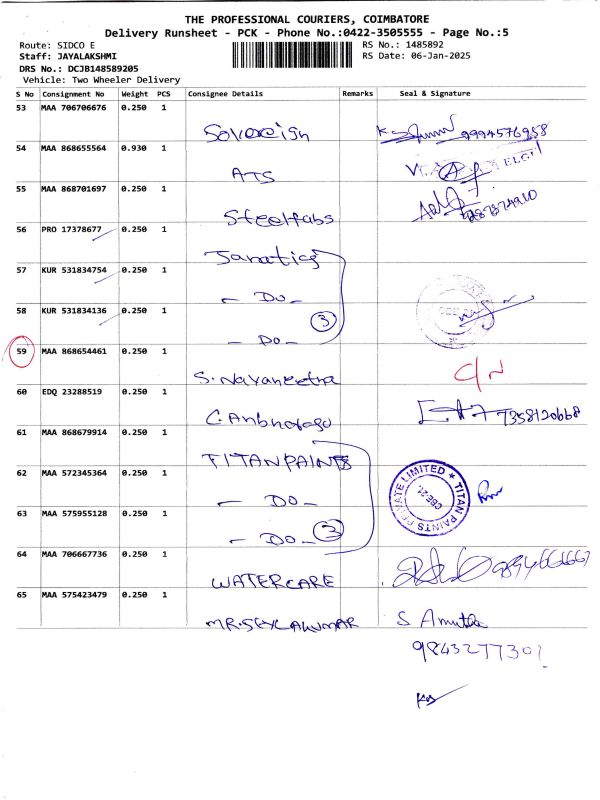 THE PROFESSIONAL COURIERS, COIMBATORE
Delivery Runsheet - PCK - Phone No.:0422-3505555 - Page No.:5
Route: SIDCO E RS No.: 1485892
Staff: JAYALAKSHMI RS Date: 06-Jan-2025
DRS No.: DCJB148589205
Vehicle: Two Wheeler Delivery
S No Consignment No Weight PCS Consignee Details Remarks Seal & Signature
53 MAA 706706676 0.250 1
Sovereign 9994576958
54 MAA 868655564 0.930 1
ATS ELGI
55 MAA 868701697 0.250 1
Steelfabs
56 PRO 17378677 0.250 1
Janatics
57 KUR 531834754 0.250 1
- DO -
58 KUR 531834136 0.250 1
3
- DO -
59 MAA 868654461 0.250 1
S. Navaneetha C/N
60 EDQ 23288519 0.250 1
7358120668
61 MAA 868679914 0.250 1
TITAN PAINTS
62 MAA 572345364 0.250 1
- DO - TITAN PAINTS PRIVATE LIMITED ★ CBE-21.
63 MAA 575955128 0.250 1
- DO - 3
64 MAA 706667736 0.250 1
WATERCARE
65 MAA 575423479 0.250 1
S Amutha
9843277301